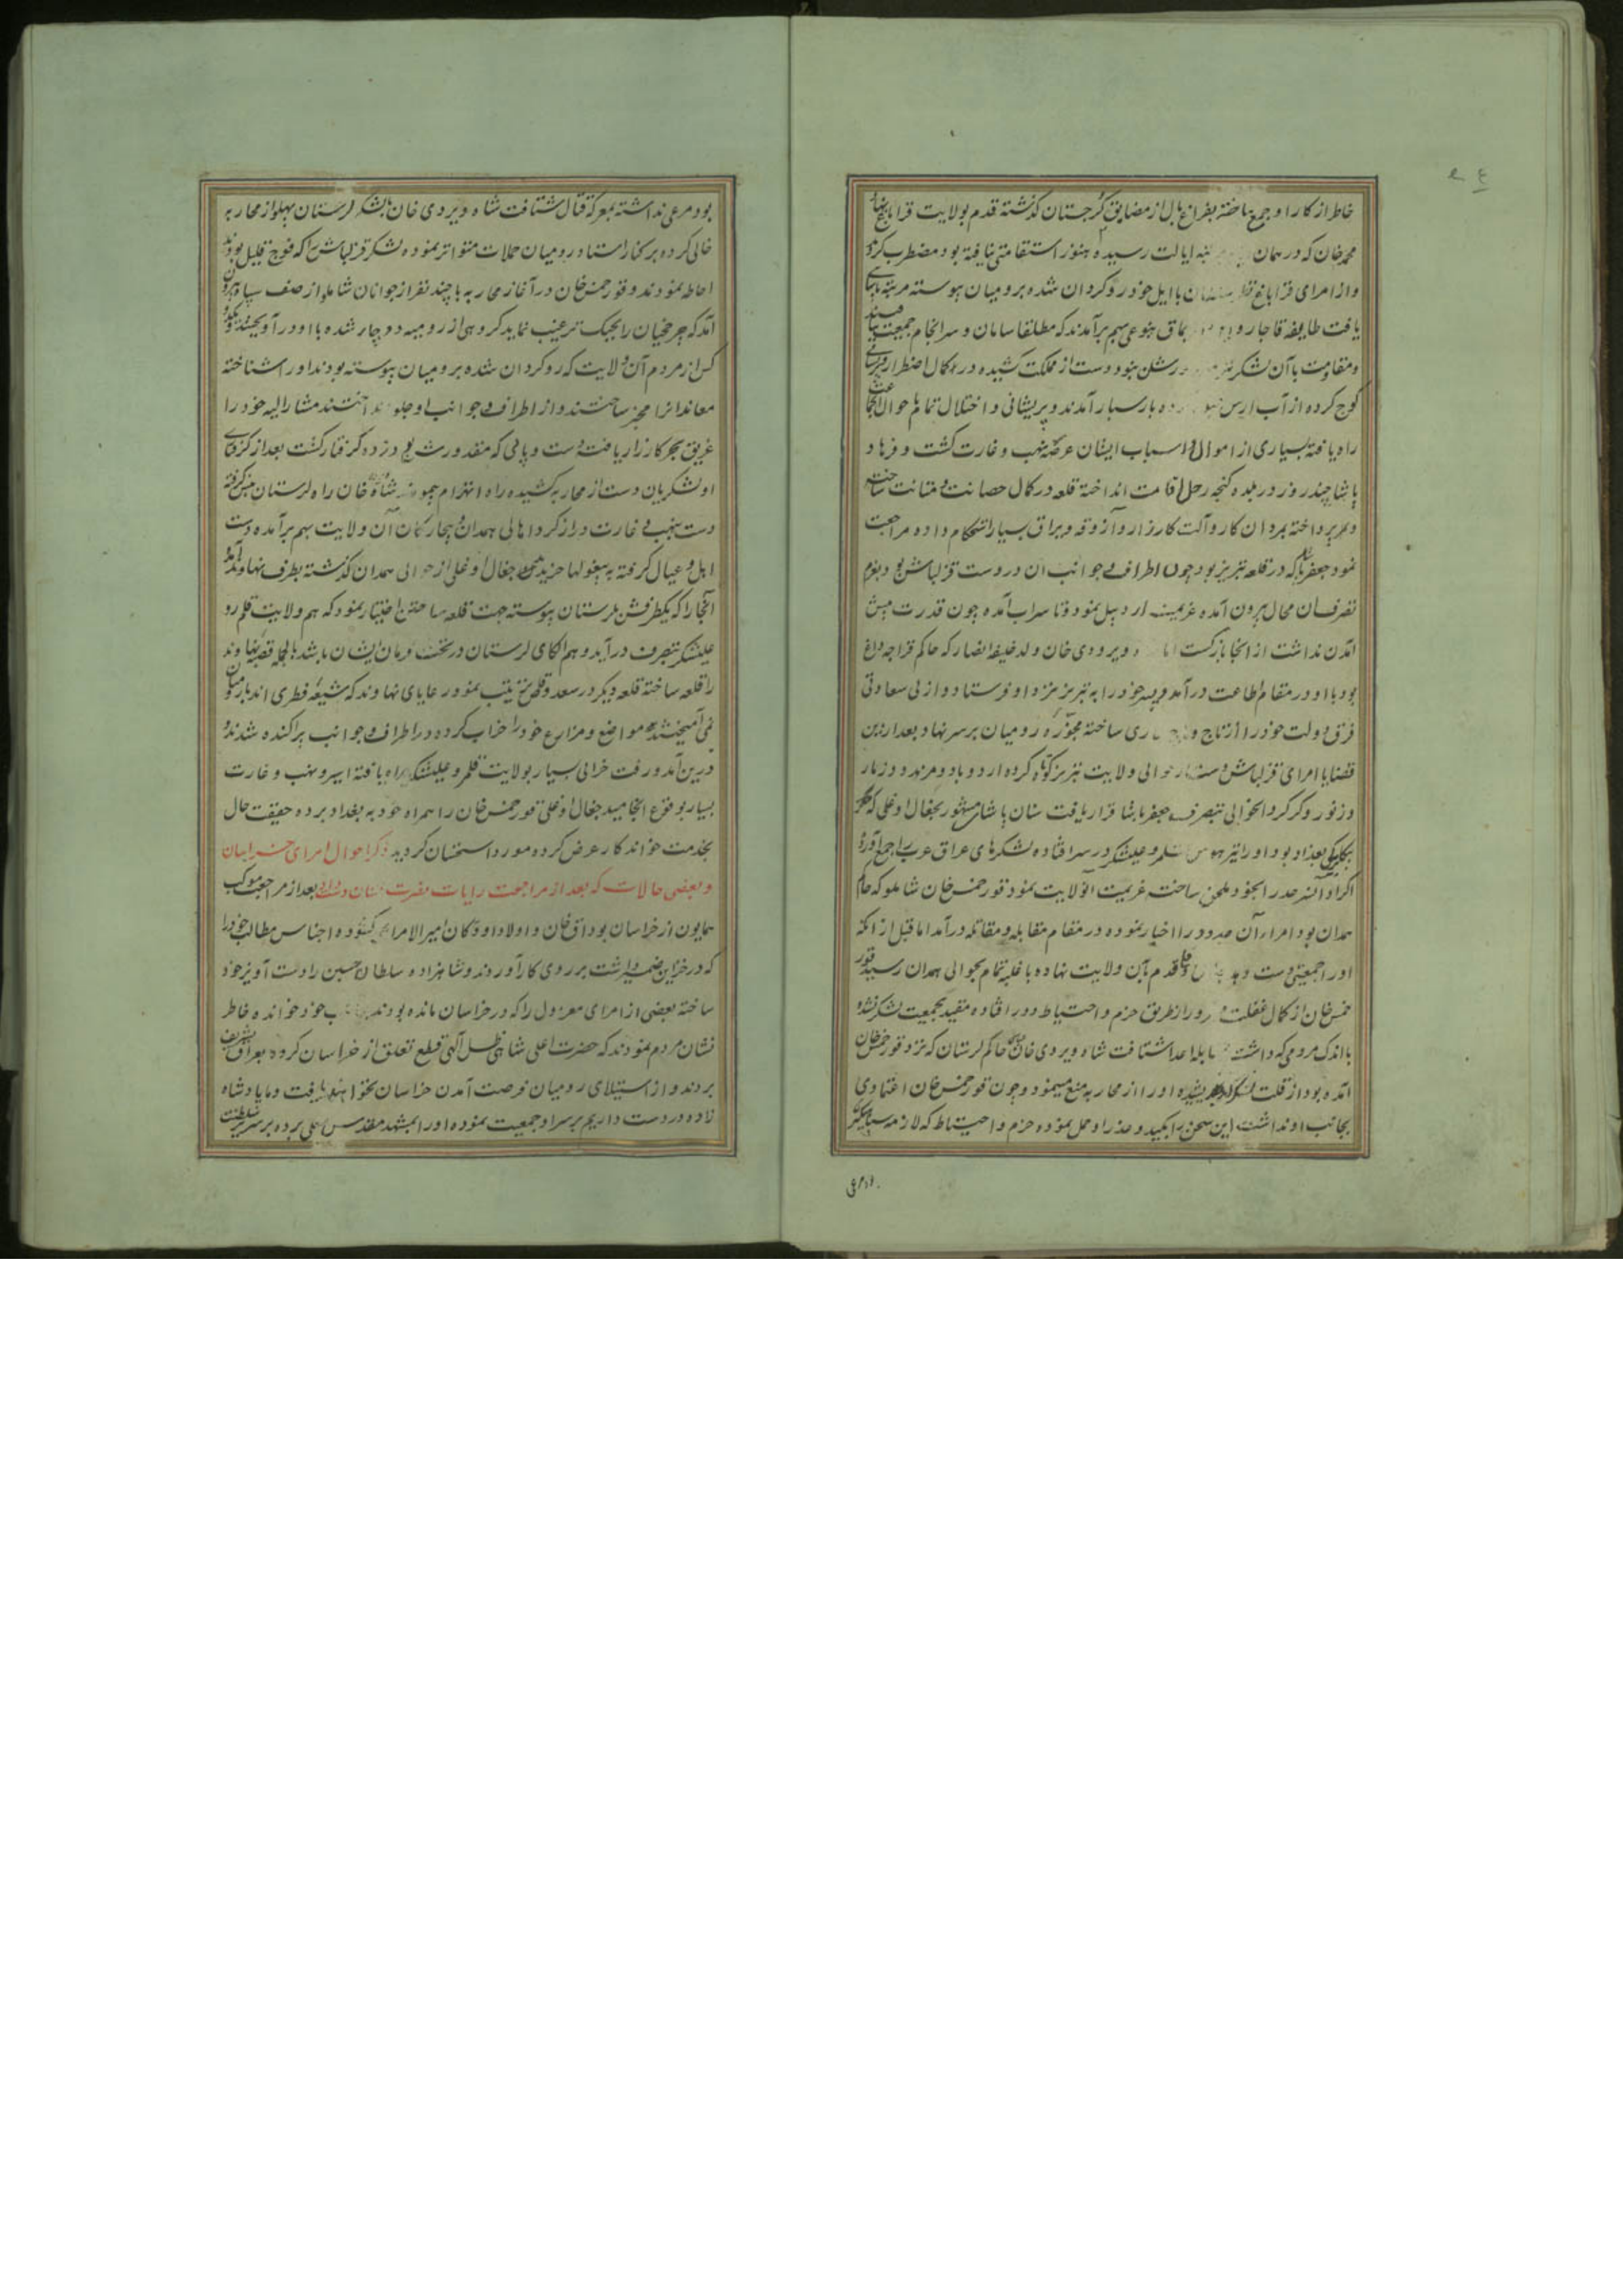 خاطر از کار او جمع ساخته بفراغ بال از مضایق گرجستان گذشته قدم بولایت قراباغ نهاد
محمد خان که در همان ایالت رسیده هنوز استقامتی نیافته بود مضطرب گردید
و از امرای قراباغ با ایل خود روگردان شده برومیان پیوسته مرتبه پاشایی
یافت طایفه قاجار و بنوعی بهم برآمدند که مطلقا سامان و سرانجام جمعیت
و مقاومت با آن لشکر نبود دست از مملکت کشیده در کمال اضطرار و پریشانی
کوچ کرده از آب ارس بارسبار آمدند و پریشانی و اختلال تمام باحوال
راه یافته بسیاری از اموال و اسباب ایشان عرضه نهب و غارت گشت و فرهاد
پاشا چند روز در بلده گنجه رحل اقامت انداخته قلعه در کمال حصانت و متانت ساخته
بمردان کار و آلت کارزار و آزوقه و یراق بسیار استحکام داده مراجعت
نمود جعفر پاشا که در قلعه تبریز بود چون اطراف و جوانب آن در دست قزلباش بود بعزم
تصرف آن محال بیرون آمده عزیمت اردبیل نمود و تا سراب آمده چون قدرت پیش
آمدن نداشت از آنجا بازگشت اما ویردی خان ولد خلیفه انصار که حاکم قراجه داغ
بود با او در مقام اطاعت درآمد و پسر خود را به تبریز نزد او فرستاد و از بی سعادتی
فرق دولت خود را از تاج و عاری ساخته مجوزه رومیان بر سر نهاد بعد از این
قضایا امرای قزلباش دست از حوالی ولایت تبریز کوتاه کرده اردوباد و مرند و زمار
و زنوز و کرکر و آنحوالی بتصرف جعفر پاشا قرار یافت سنان پاشا مشهور بجغال اوغلی که
بیگلربیگی بغداد بود او را نیز هوس قلمرو علیشکر در سر افتاده لشکرهای عراق عرب را جمع آورده
اکراد آن سرحد را بخود ملحق ساخت عزیمت آنولایت نمود قورخمس خان شاملو که حاکم
همدان بود امراء آن حدود را اخبار نموده در مقام مقابله و مقاتله درآمد اما قبل از آنکه
او را جمعیتی دست دهد قدم بآن ولایت نهاده با غلبه تمام بحوالی همدان رسید قور
خمس خان از کمال غفلت و غرور از طریق حزم و احتیاط دور افتاده مقید بجمعیت لشکر نشده
با اندک مردمی که داشت مقابله اعدا شتافت شاه ویردی خان حاکم لرستان که نزد قورخمس خان
آمده بود از قلت لشکر اندیشیده او را از محاربه منع مینمود و چون قورخمس خان اعتمادی
بجانب او نداشت این سخن را بکید و غدر او حمل نموده حزم و احتیاط که لازمه سپاهیگری
بود مرعی نداشته بمعرکه قتال شتافت شاه ویردی خان با لشکر لرستان پهلو از محاربه
خالی کرده بر کنار استاد رومیان حملات متواتر نموده لشکر قزلباش را که فوج قلیل بودند
احاطه نمودند و قورخمس خان در آغاز محاربه با چند نفر از جوانان شاملو از صف سپاه بیرون
آمد که چرخچیان را بجنگ ترغیب نماید گروهی از رومیه دوچار شده با او درآویختند و یکدو
کس از مردم آن ولایت که روگردان شده برومیان پیوسته بودند او را شناخته
معاندانرا مخبر ساختند و از اطراف و جوانب او جلو انداختند مشارالیه خود را
غریق بحر کارزار یافت دست و پائی که مقدورش بود زده گرفتار گشت بعد از گرفتاری
او لشکریان دست از محاربه کشیده راه انهزام پیمودند شاه ویردی خان راه لرستان پیش گرفته
دست بنهب و غارت دراز کرد اهالی همدان و بیچارگان آن ولایت بهم برآمده دست
اهل و عیال گرفته به بیغولها خزیدند جغال اوغلی از حوالی همدان گذشته بطرف نهاوند آمد
آنجا را که یکطرفش بلرستان پیوسته جهت قلعه ساختن اختیار نمود که هم ولایت قلمرو
علیشکر بتصرف درآید و هم الکای لرستان در تحت فرمان ایشان باشد بالجمله قصبه نهاوند
را قلعه ساخته قلعه دیگر در سعد وقاص ترتیب نمود رعایای نهاوند که شیعه فطری اند با رومیان
نمی‌آمیختند مواضع و مزارع خود را خراب کرده در اطراف و جوانب پراکنده شدند و
درین آمد و رفت خرابی بسیار بولایت قلمرو علیشکر راه یافته اسیر و نهب و غارت
بسیار بوقوع انجامید جغال اوغلی قورخمس خان را همراه خود به بغداد برده حقیقت حال
بخدمت خواندگار عرض کرده مورد استحسان گردید ذکر احوال امرای خراسان
و بعضی حالات که بعد از مراجعت رایات نصرت نشان روی داد بعد از مراجعت موکب
همایون از خراسان بوداق خان و اولاد او و کسان امیرالامرایی گشوده اجناس مطالب خود را
که در خزاین ضمیر داشت بر روی کار آوردند و شاهزاده سلطان حسین را دست آویز خود
ساخته بعضی از امرای معزول را که در خراسان مانده بودند بجانب خود خوانده خاطر
نشان مردم نمودند که حضرت اعلی شاهی ظل اللهی قطع تعلق از خراسان کرده بعراق تشریف
بردند و از استیلای رومیان فرصت آمدن خراسان نخواهند یافت و ما پادشاه
زاده در دست داریم بر سر او جمعیت نموده او را بمشهد مقدس معلی برده بر سریر سلطنت